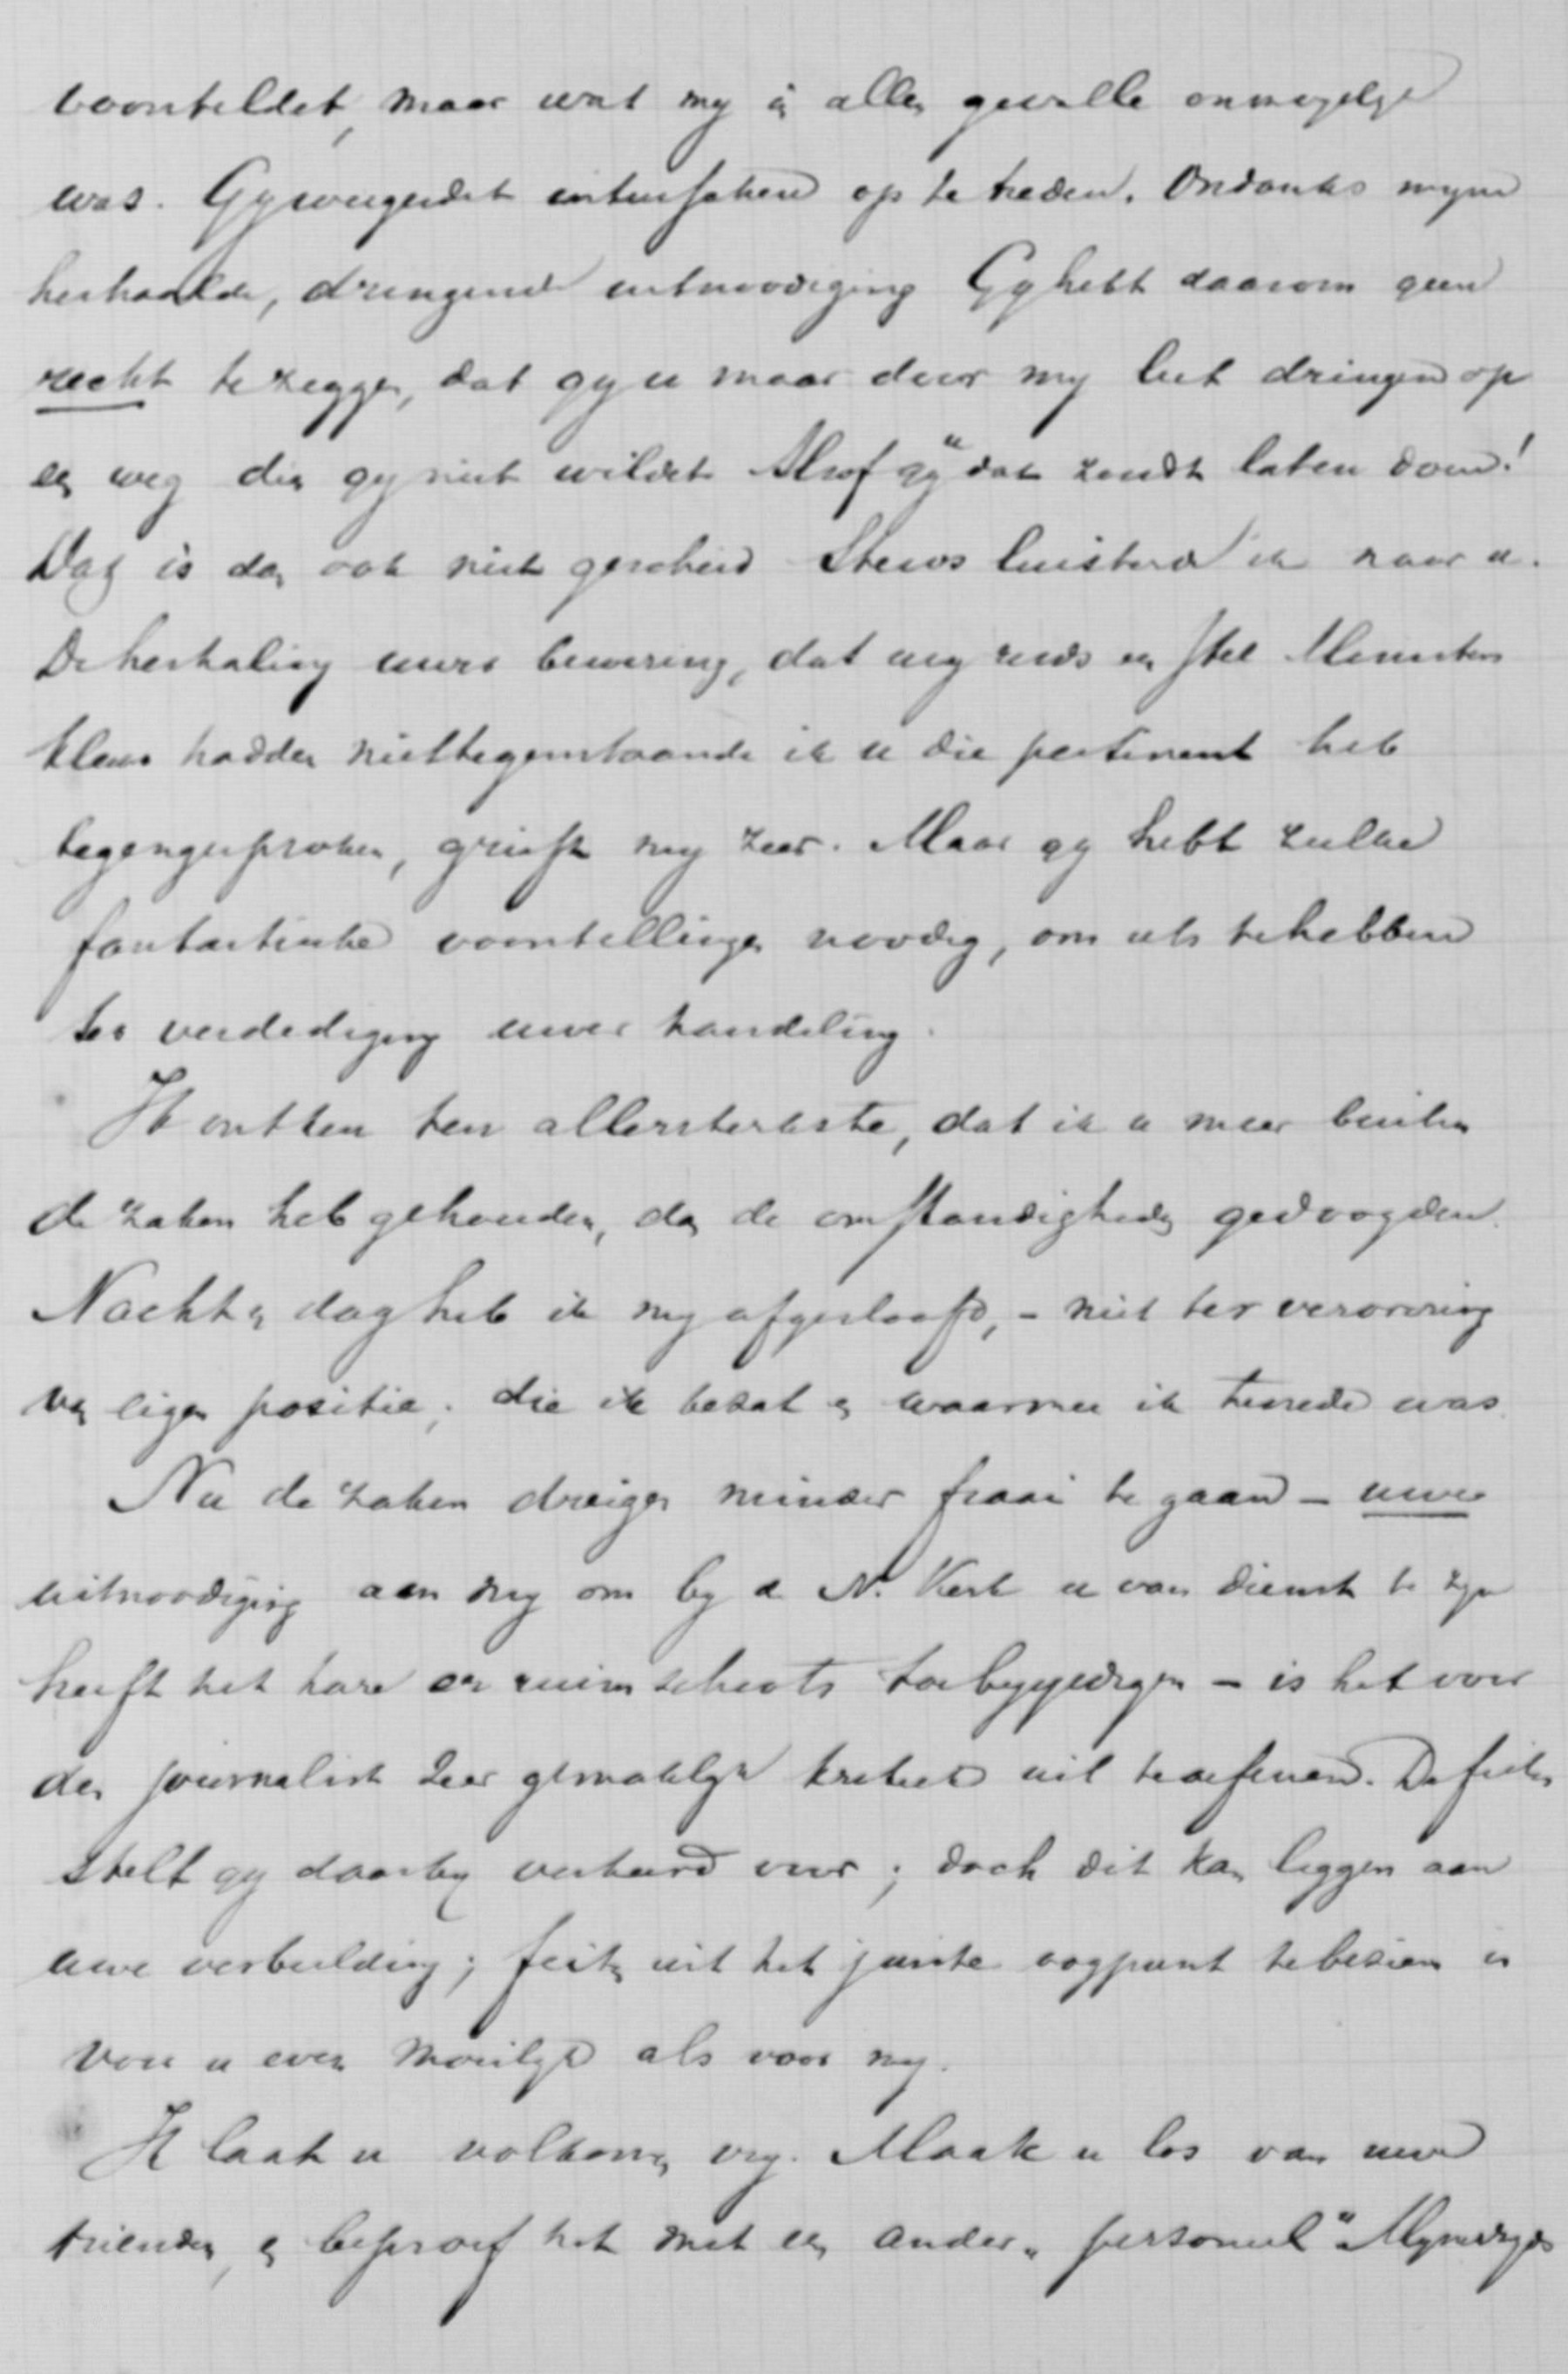 voorsteldet, maar wat my in allen gevalle onmogelyk
was. Gy weigerdet entusschen op te treden. Ondanks myne
herhaalde, dringende uitnoodiging Gy hebt daarom geen
recht te zeggen, dat gy u maar door my liet dringen op
een weg dien gy niet wildet Alsof gy u dat zoudt laten doen!
Dat is dan ook niet geschied Steeds luisterde ik naar u.
De herhaling uwer bewering, dat wy reeds een stel Ministers
klaar hadden niettegenstaande ik u die pertinent heb
tegengesproken, grieft my zeer. Maar gy hebt zulke
fantastische voorstellingen noodig, om iets te hebben
ter verdediging uwer handeling.
Ik ontken ten allersterkste, dat ik u meer buiten
de zaken heb gehouden, dan de omstandigheden gedoogden.
Nacht en dag heb ik my afgesloofd, - niet ter verovering
van eigen positie; die ik bezat en waarmee ik tevreden was.
Nu de zaken dreigen minder fraai te gaan - uwe
uitnoodiging aan my om by de N. Kerk u van dienst te zyn
heeft het hare er ruimschoots toe bygedragen - is het voor
den journalist zeer gemakkelyk kritiek uit te oefenen. De feiten
stelt gy daarby verkeerd voor; doch dit kan liggen aan
uwe verbeelding; feiten uit het juiste oogpunt te bezien is
voor u even moeilyk als voor my.
Ik laat u volkomen vry. Maak u los van uwe
vrienden, en beproef het met een ander „personeel" Mynerzyds